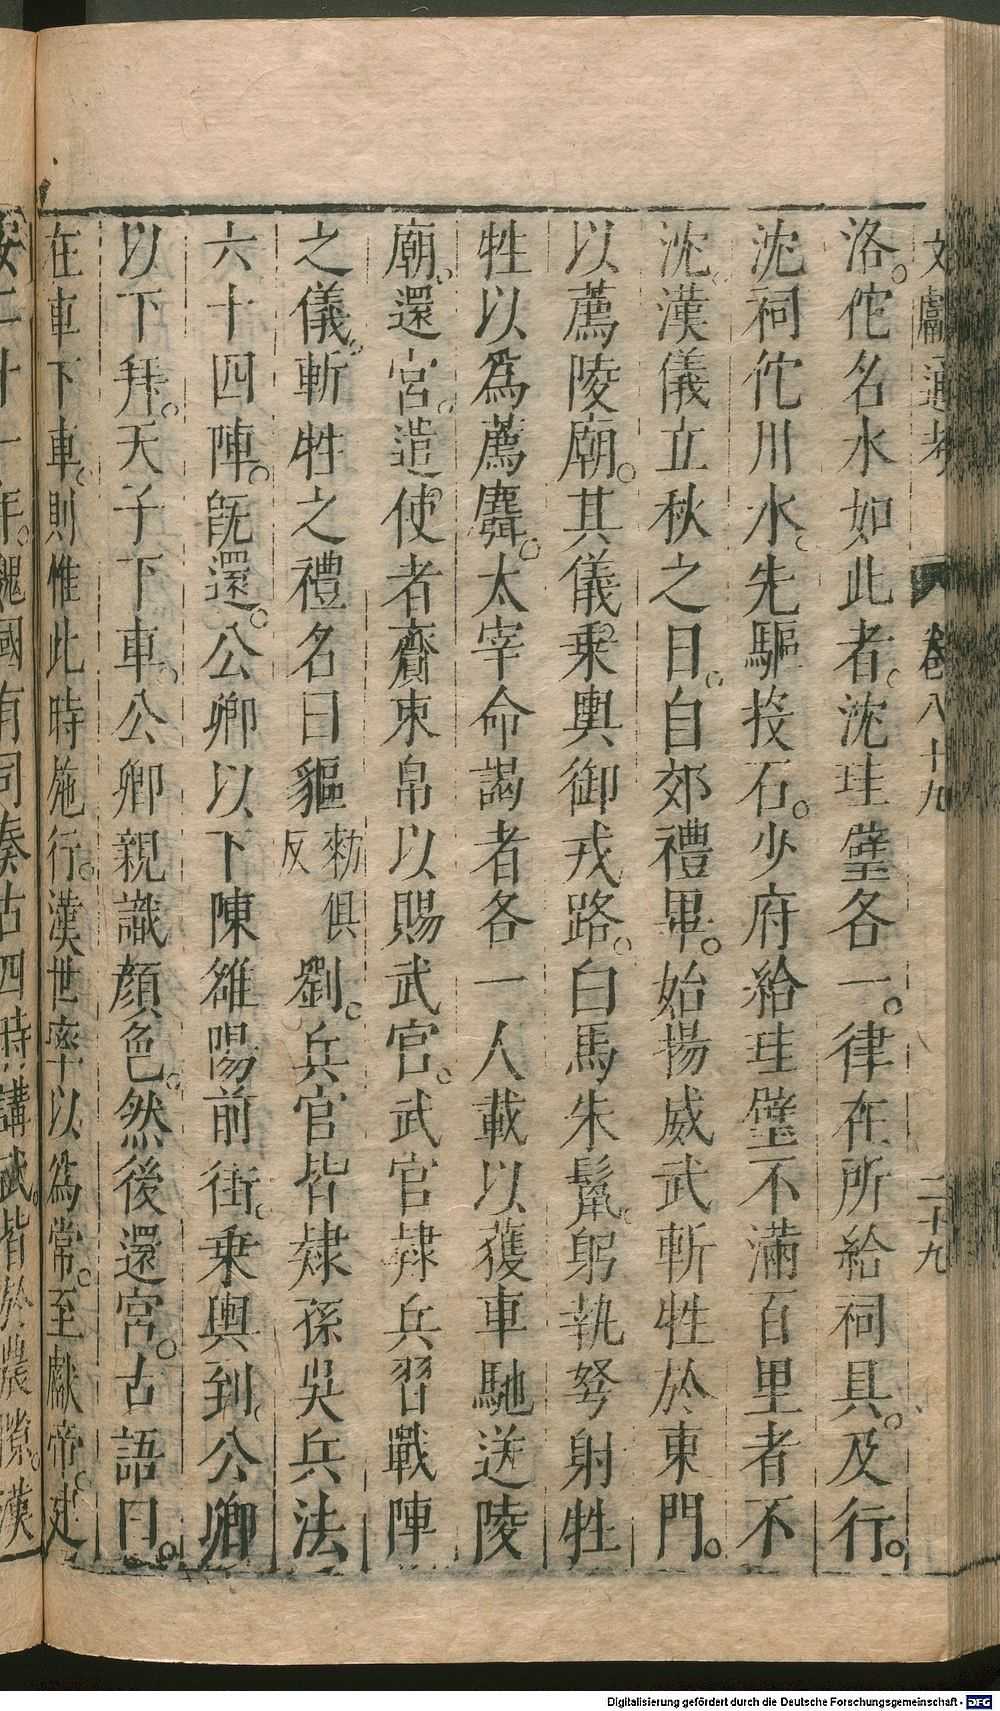 文獻通考 卷八十九 二十九
洛。佗名水如此者。沈珪璧各一。律在所給祠具。及行。
沈祠佗川水。先驅投石。少府給珪璧不滿百里者不
沈。漢儀立秋之日。自郊禮畢。始揚威武斬牲於東門。
以薦陵廟。其儀。乗輿御戎路。白馬朱鬣。躬執弩射牲
牲以為薦麛。太宰命謁者各一人載以獲車馳送陵
廟。還宮。遣使者齎束帛以賜武官。武官隷兵習戰陣
之儀。斬牲之禮名曰貙
勑俱
反
劉。兵官皆隷孫吳兵法
六十四陣。旣還。公卿以下陳雒陽前街。乗輿到。公卿
以下拜。天子下車。公卿親識顔色。然後還宮。古語曰。
在車下車。則惟此時施行。漢世率以為常。至獻帝。建
安二十一年。魏國有司奏古四時講武。皆於農隙。漢
Digitalisierung gefördert durch die Deutsche Forschungsgemeinschaft - DFG